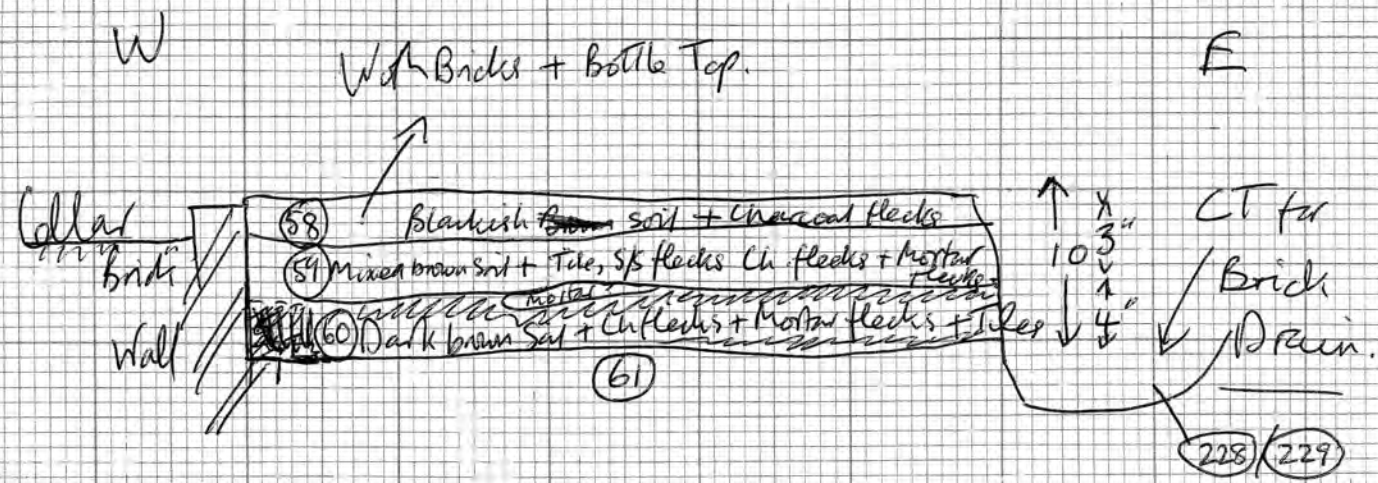 W
E
With Bricks + Bottle Top.
Cellar
Brick
Wall
58 Blackish Brown soil + Charcoal flecks
59 Mixed brown Soil + Tile, S/S flecks Ch flecks + Mortar
flecks
Mortar
60 Dark brown Soil + Ch flecks + Mortar flecks + Tiles
61
10
3"
4"
CT for
Brick
Drain.
228/229